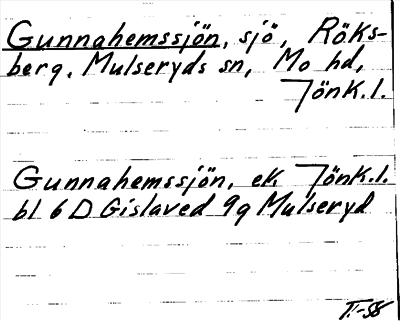 Gunnahemssjön, sjö, Röks-
berg, Mulseryds sn, Mo hd,
Jönk.l.
Gunnahemssjön, ek. Jönk.l.
bl 6 D Gislaved 9g Mulseryd
T.-58